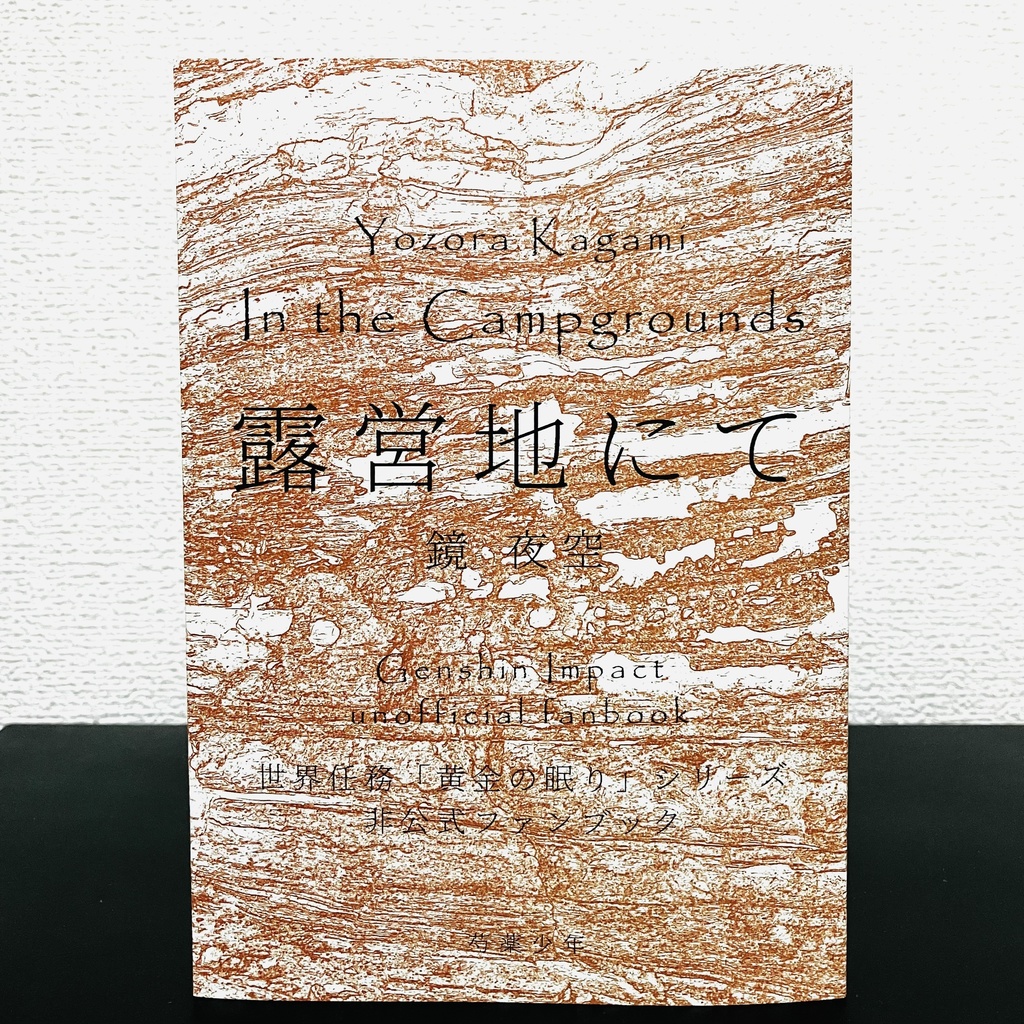 Yozora Kagami
In the Campgrounds
露営地にて
鏡 夜空
Genshin Impact
unofficial fanbook
世界任務「黄金の眠り」シリーズ
非公式ファンブック
芍薬少年